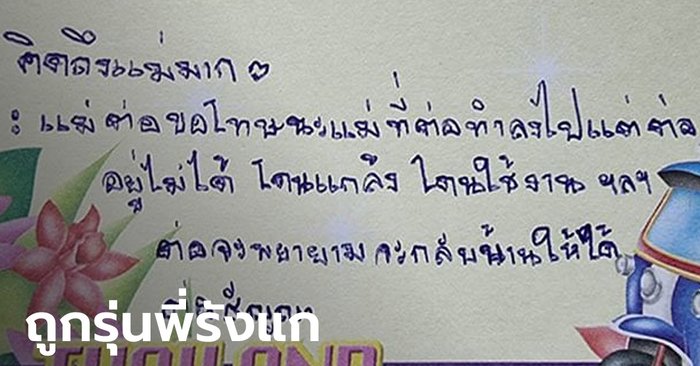 คิดถึงแม่มาก ๆ
: แม่ต่อขอโทษนะแม่ที่ต่อทำลงไปแต่ต่อ
อยู่ไม่ได้ โดนแกล้ง โดนใช้งาน ฯลฯ
ต่อจะพยายามจะกลับบ้านให้ได้
ถูกรุ่นพี่รังแก
THAILAND